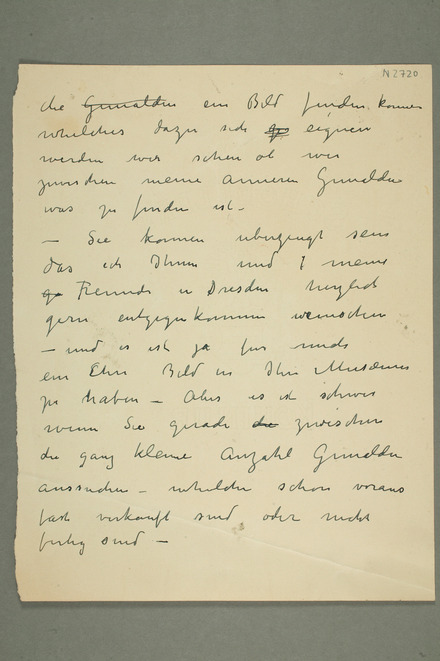 N 2720
die Gemälden ein Bild finden konnen
whelches dazu sich eignen
werden wir sehen ob wir
zwischen meine anneren Gemelden
was zu finden ist –
– Sie konnen uberzeugt sein
das ich Ihnen und meine
Freunde in Dresden herzlich
gern entgegenkommen wunschen
– und es ist ja fur mich
ein Ehre Bild in Ihr Museum
zu haben – Aber es ist schwer
wenn Sie gerade die zwischen
die ganz kleine Anzahl Gemelden
aussuchen – whelche schon voraus
fast verkauft sind oder nicht
fertig sind –